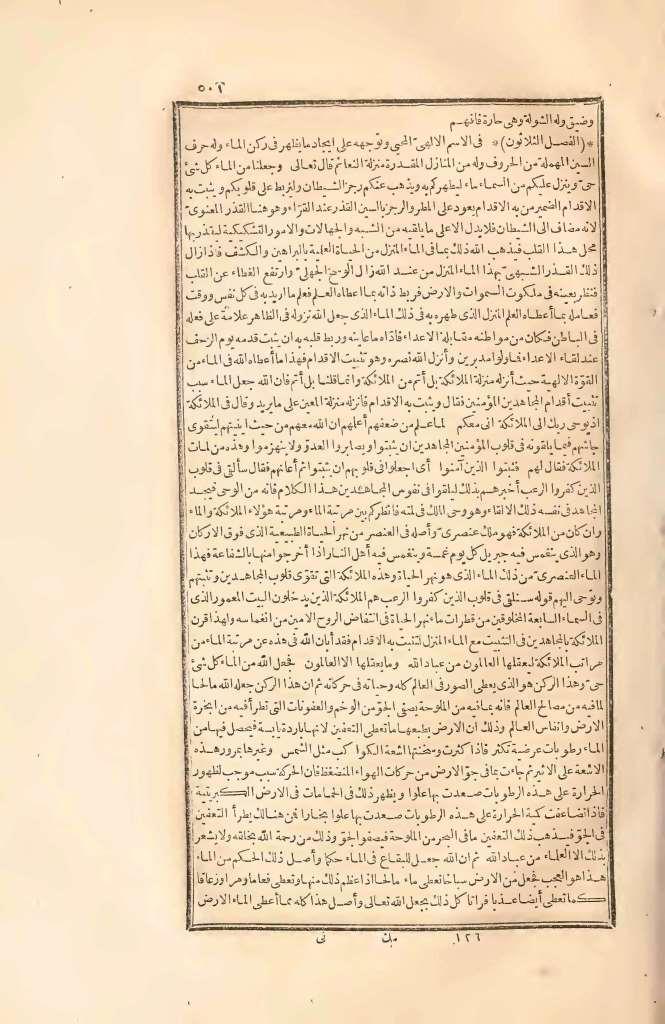 ٥٠٦
وضيق وله الشولة وهى حارة فافهم
*(الفصل الثلاثون)* فى الاسم الالهىّ المحيى وتوجهه على ايجاد ما يظهر فى ركن الماء وله حرف
السين المهملة من الحروف وله من المنازل المقدرة منزلة النعائم قال تعالى وجعلنا من الماء كل شئ
حىّ وينزل عليكم من السماء ماء ليطهركم به ويذهب عنكم رجز الشيطان وليربط على قلوبكم ويثبت به
الاقدام الضمير من به الاقدام يعود على المطر والرجز بالسين القذر عند القراء وهو هنا القذر المعنوىّ
لانه مضاف الى الشيطان فلا يدل الا على ما يلقيه من الشبه والجهالات والامور التشكيكية ليقذر بها
محل هذا القلب فيذهب الله ذلك بما فى الماء المنزل من الحياة العلمية بالبراهين والكشف فاذا زال
ذلك القذر الشبهىّ بهذا الماء المنزل من عند الله زال الوسخ الجهلىّ وارتفع الغطاء عن القلب
فنظر بعينه فى ملكوت السموات والارض فربط ذاته بما اعطاه العلم فعلم ما اريد به فى كل نفس ووقت
فعامله بما أعطاه العلم المنزل الذى طهره به فى ذلك الماء الذى جعل الله نزوله فى الظاهر علامة على فعله
فى الباطن فكان من مواطنه مقابلة الاعداء فاذاه ما عاينه وربط قلبه به ان يثبت قدمه يوم الزحف
عند لقاء الاعداء فما ولوا مدبرين وأنزل الله نصره وهو تثبيت الاقدام فهذا ما أعطاه الله فى الماء من
القوّة الالهية حيث أنزله منزلة الملائكة بل أتم من الملائكة وانما قلنا بل أتم فان الله جعل الماء سبب
تثبيت أقدام المجاهدين المؤمنين فقال ويثبت به الاقدام فانزله منزلة المعين على ما يريد وقال فى الملائكة
اذ يوحى ربك الى الملائكة انى معكم لما علم من ضعفهم أعلمهم ان الله معهم من حيث انيتهم ليتقوى
جاشهم فيما يلقونه فى قلوب المؤمنين المجاهدين ان يثبتوا ويصابروا العدوّ ولا ينهزموا وهذه من لمات
الملائكة فقال لهم فثبتوا الذين آمنوا أى اجعلوا فى قلوبهم ان يثبتوا ثم أعانهم فقال سألقى فى قلوب
الذين كفروا الرعب أخبرهم بذلك ليلقوا فى نفوس المجاهدين هذا الكلام فانه من الوحى فيجد
المجاهد فى نفسه ذلك الالقاء وهو وحى الملك فى لمته فانظر كم بين مرتبة الماء ومرتبة هؤلاء الملائكة والماء
وان كان من الملائكة فهو ملك عنصرىّ وأصله فى العنصر من نهر الحياة الطبيعية الذى فوق الاركان
وهو الذى ينغمس فيه جبريل كل يوم غمسة وينغمس فيه أهل النار اذا أخرجوا منها بالشفاعة فهذا
الماء العنصرىّ من ذلك الماء الذى هو نهر الحياة وهذه الملائكة التى تقوى قلوب المجاهدين وتثبتهم
وتوحى اليهم قوله سنلقى فى قلوب الذين كفروا الرعب هم الملائكة الذين يدخلون البيت المعمور الذى
فى السماء السابعة المخلوقين من قطرات ماء نهر الحياة فى انتفاض الروح الامين من انغماسه ولهذا قرن
الملائكة بالمجاهدين فى التثبيت مع الماء المنزل لتثبت به الاقدام فقد أبان الله فى هذه عن مرتبة الماء من
مراتب الملائكة ليعقلها العالمون من عباد الله وما يعقلها الا العالمون فجعل الله من الماء كل شئ
حىّ وهذا الركن هو الذى يعطى الصور فى العالم كله وحياته فى حركاته ثم ان هذا الركن جعله الله مالحا
لما فيه من مصالح العالم فانه بما فيه من الملوحة يصفى الجوّ من الوخم والعفونات التى تطرأ فيه من ابخرة
الارض وانفاس العالم وذلك ان الارض بطبعها ما تعطى التعفين لانها باردة يابسة فيحصل فيها من
الماء رطوبات عرضية تكثر فاذا كثرت وسخنتها اشعة الكواكب مثل الشمس وغيرها بمرور هذه
الاشعة على الاثير ثم جاءت بما فى جوّ الارض من حركات الهواء المنضغط فان الحركة سبب موجب لظهور
الحرارة على هذه الرطوبات صعدت بها علوا ويظهر ذلك فى الحمامات فى الارض الكبريتية
فاذا تضاعفت كمية الحرارة على هذه الرطوبات صعدت بها علوا بخارا فمن هنالك يطرأ التعفين
فى الجوّ فيذهب ذلك التعفين ما فى البحر من الملوحة فيصفو الجوّ وذلك من رحمة الله بخلقه ولا يشعر
بذلك الا العلماء من عباد الله ثم ان الله جعل للبقاع فى الماء حكما وأصل ذلك الحكم من الماء
هذا هو العجب فجعل من الارض سباخا تعطى ماء مالحا اذ اعظم ذلك منها وتعطى فعاما ومرّا وزعاقا
كما تعطى أيضا عذبا فراتا كل ذلك بجعل الله تعالى وأصل هذا كله مما أعطى الماء الارض
١٢٦ مك نى